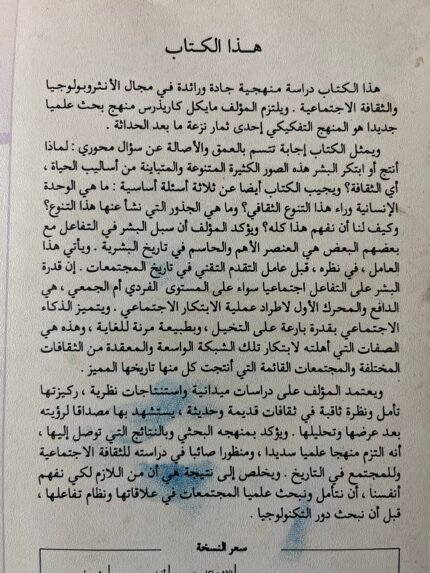 هـذا الكـتاب
هذا الكتاب دراسة منهجية جادة ورائدة في مجال الأنثروبولوجيا
والثقافة الاجتماعية . ويلتزم المؤلف مايكل كاريذرس منهج بحث علميا
جديدا هو المنهج التفكيكي إحدى ثمار نزعة ما بعد الحداثة .
ويمثل الكتاب إجابة تتسم بالعمق والأصالة عن سؤال محوري : لماذا
أنتج أو ابتكر البشر هذه الصور الكثيرة المتنوعة والمتباينة من أساليب الحياة ،
أي الثقافة؟ ويجيب الكتاب أيضا عن ثلاثة أسئلة أساسية : ما هي الوحدة
الإنسانية وراء هذا التنوع الثقافي؟ وما هي الجذور التي نشأ عنها هذا التنوع؟
وكيف لنا أن نفهم هذا كله؟ ويؤكد المؤلف أن سبل البشر في التفاعل مع
بعضهم البعض هي العنصر الأهم والحاسم في تاريخ البشرية . ويأتي هذا
العامل ، في نظره ، قبل عامل التقدم التقني في تاريخ المجتمعات . إن قدرة
البشر على التفاعل اجتماعيا سواء على المستوى الفردي أم الجمعي ، هي
الدافع والمحرك الأول لاطراد عملية الابتكار الاجتماعي . ويتميز الذكاء
الاجتماعي بقدرة بارعة على التخيل ، وبطبيعة مرنة للغاية ، وهذه هي
الصفات التي أهلته لابتكار تلك الشبكة الواسعة والمعقدة من الثقافات
المختلفة والمجتمعات القائمة التي أنتجت كل منها تاريخها المميز .
ويعتمد المؤلف على دراسات ميدانية واستنتاجات نظرية ، ركيزتها
تأمل ونظرة ثاقبة في ثقافات قديمة وحديثة ، يستشهد بها مصداقا لرؤيته
بعد عرضها وتحليلها . ويؤكد بمنهجه البحثي وبالنتائج التي توصل إليها ،
أنه التزم منهجا علميا سديدا ، ومنظورا صائبا في دراسته للثقافة الاجتماعية
وللمجتمع في التاريخ . ويخلص إلى نتيجة هي أن من اللازم لكي نفهم
أنفسنا ، أن نتأمل ونبحث علميا المجتمعات في علاقاتها ونظام تفاعلها ،
قبل أن نبحث دور التكنولوجيا .
سعر النسخة